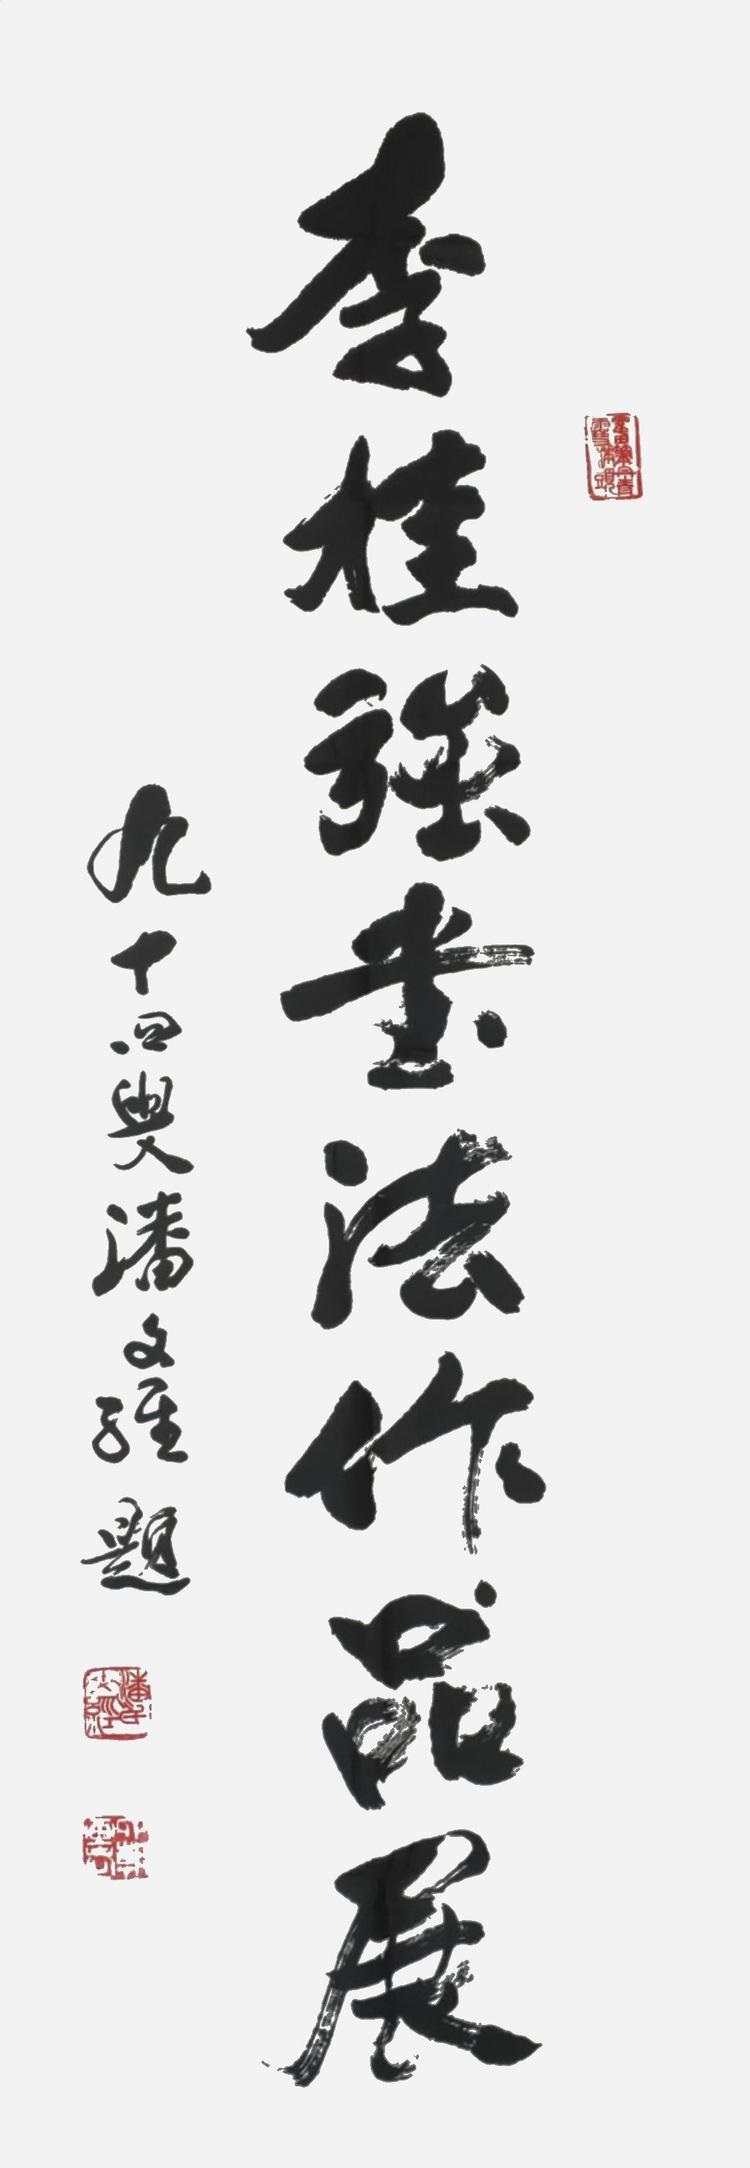 李桂强书法作品展
九十四叟潘文经题